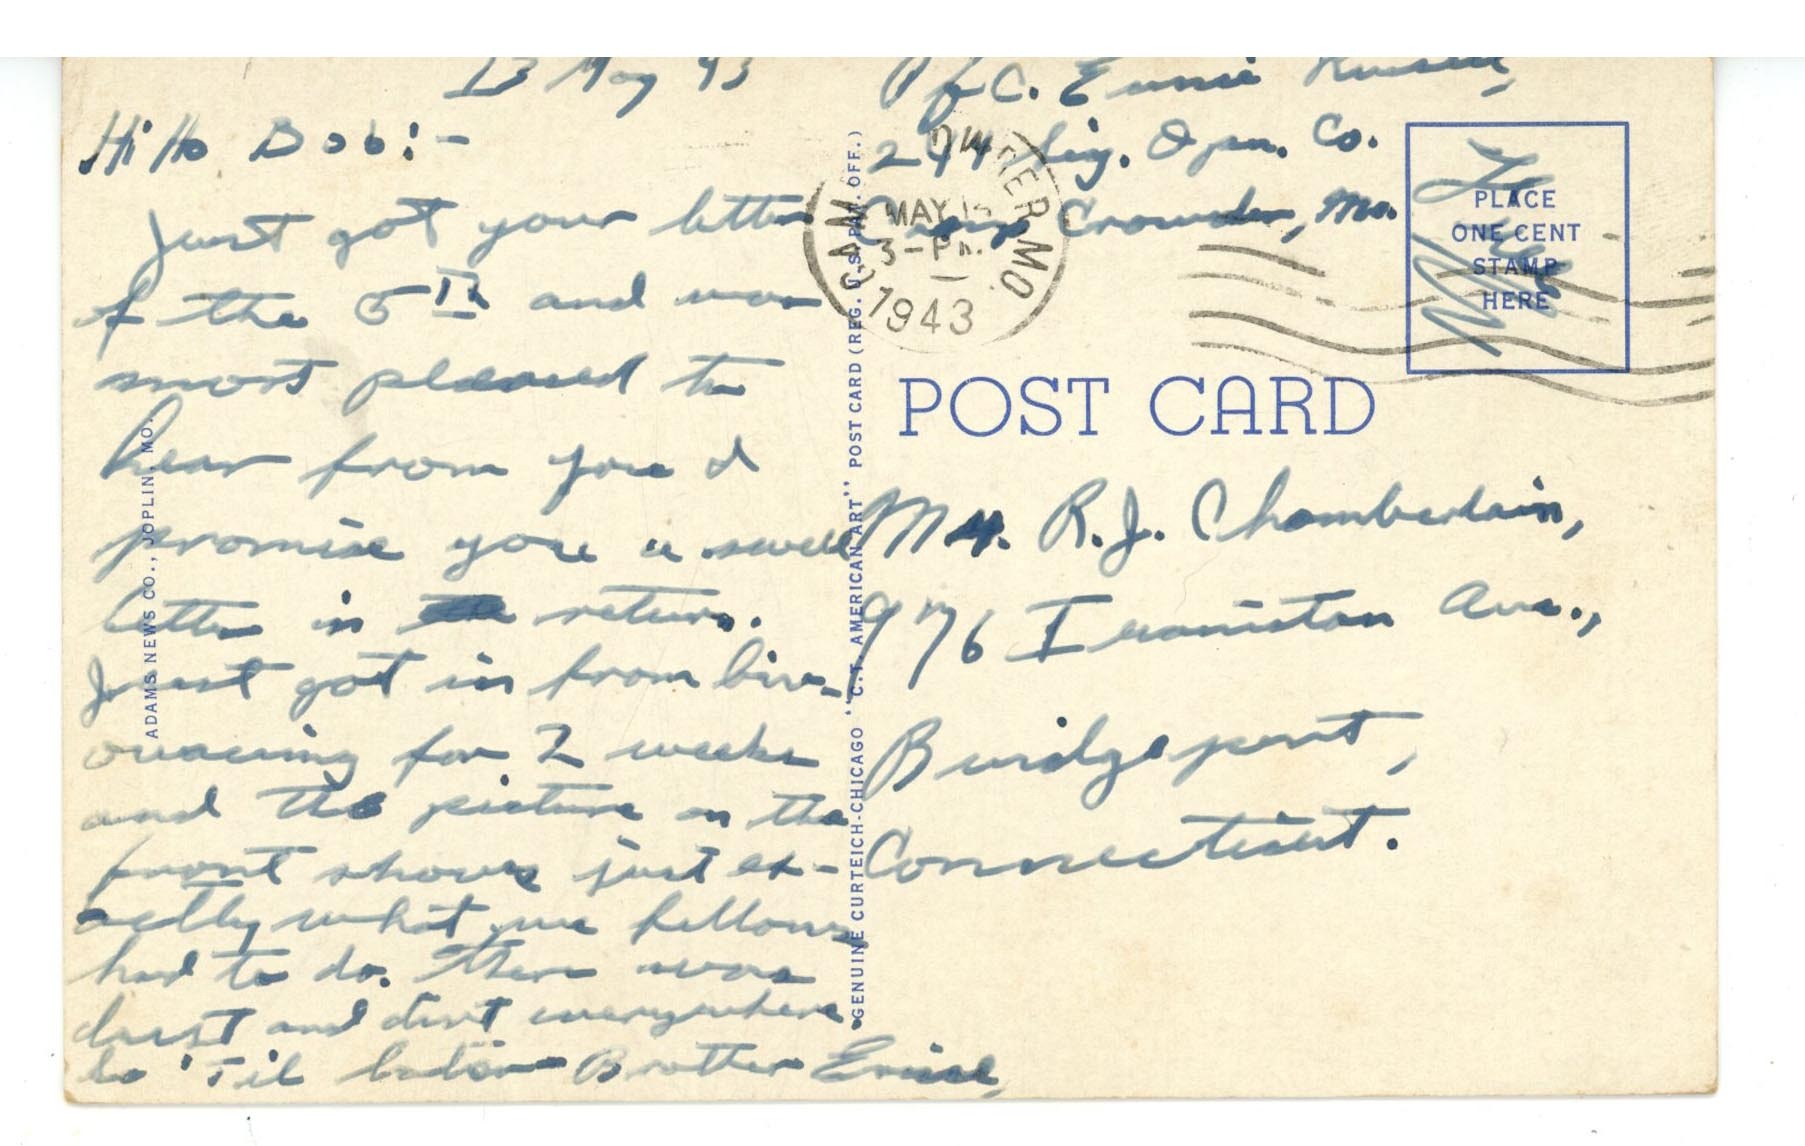 13 May 43
Hi Ho Bob:-
Just got your letter
of the 5th and was
most pleased to
hear from you I
promise you a swell
letter in the return.
Just got in from biv-
ouacing for 2 weeks
and the picture on the
front shows just ex-
actly what we fellows
had to do. There was
dust and dirt everywhere.
So 'Til later Brother Ernie
Pfc. Ernie
Sig. Opn. Co.
Camp Crowder, Mo.
CAMP CROWDER MO.
MAY
3-PM
1943
PLACE
ONE CENT
STAMP
HERE
POST CARD
Mr. R.J. Chamberlain,
976 Iranistan Ave.,
Bridgeport,
Connecticut.
ADAMS NEWS CO., JOPLIN, MO.
GENUINE CURTEICH-CHICAGO "C.T. AMERICAN ART" POST CARD (REG. U.S. PAT. OFF.)